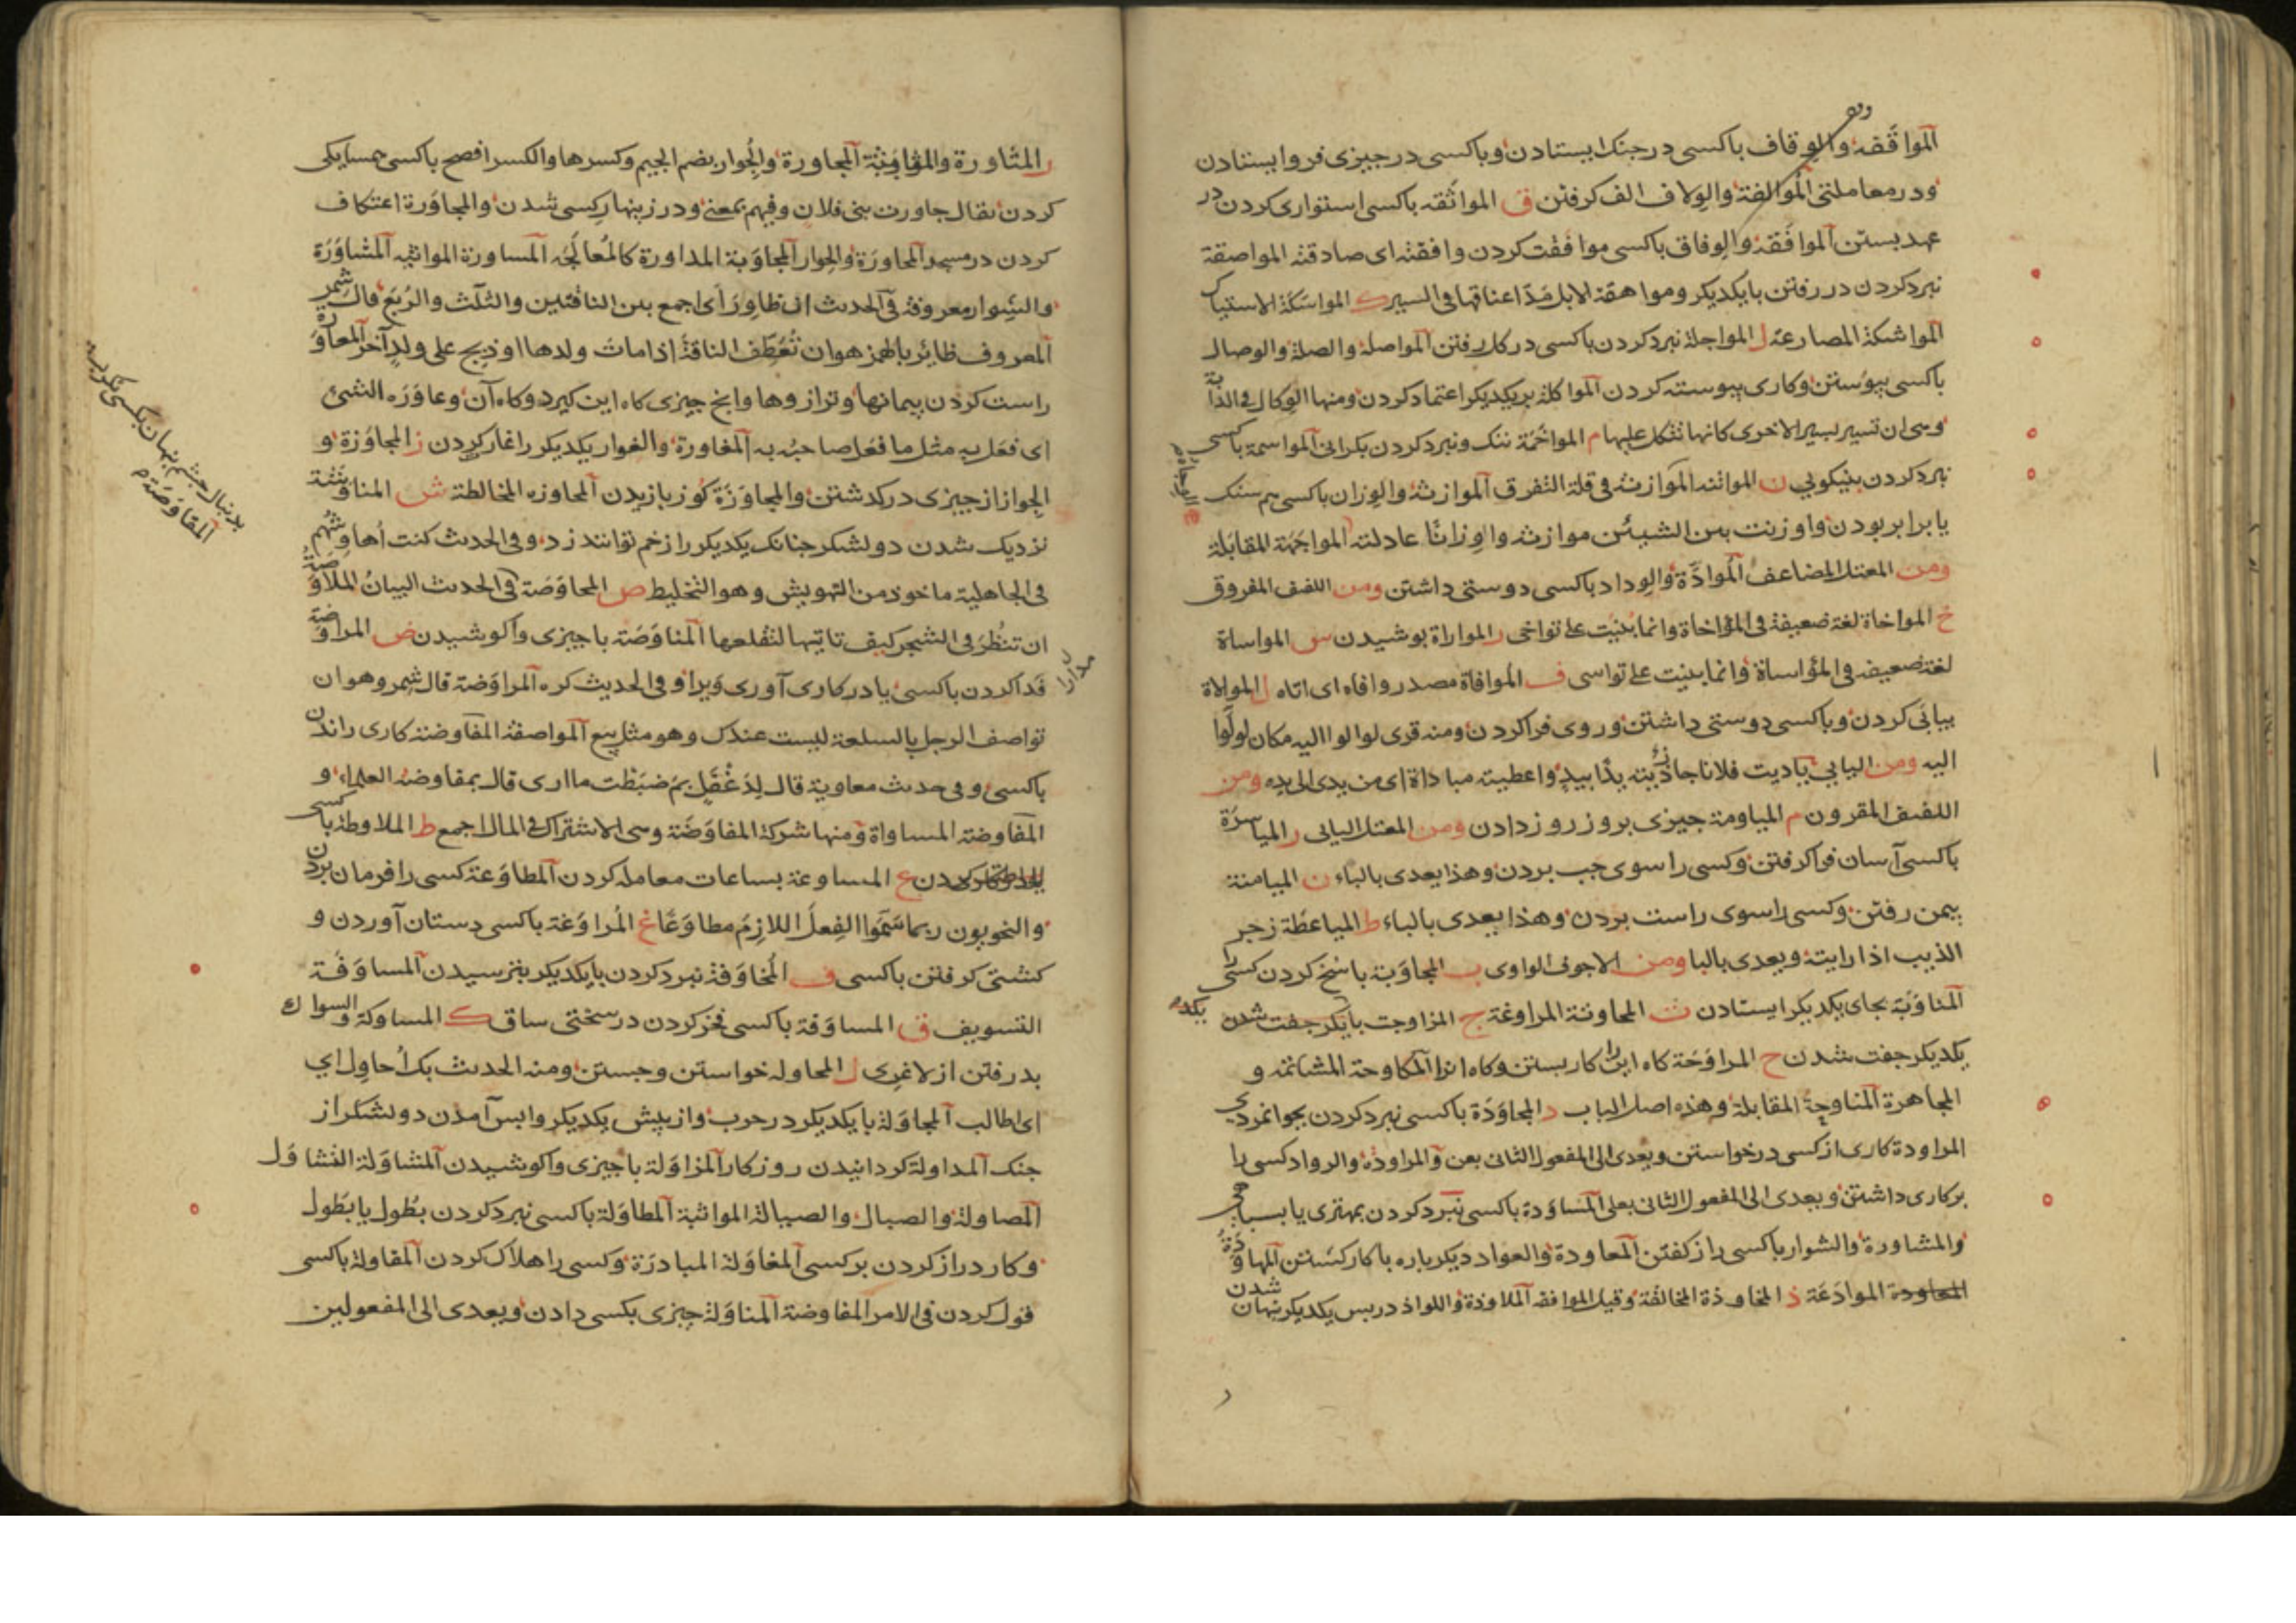 المواقفة والوقاف باکسی در جنک ایستادن وباکسی در چیزی فروایستادن
ودر معاملتی الموالفة والولاف الف کرفتن ق المواثقه باکسی استواری کردن در
عهد بستن الموافقة والوفاق باکسی موافقت کردن وافقته ای صادقته المواصقة
نبرد کردن در رفتن بایکدیکر ومواهقة الابل مدّ اعناقها فی السیر ک المواسکة الاستیاک
المواشکة المصارعة ل المواجلة نبرد کردن باکسی در کار رفتن المواصلة والصلة والوصال
باکسی پیوستن وکاری پیوسته کردن المواکلة بریکدیکر اعتماد کردن ومنها الوکال فی الدابة
وهی ان تسیر بسیر الاخری کانها تتکل علیها م المواخمة ننک ونبرد کردن بکرانی المواسمة باکسی
نبرد کردن بنیکویی ن المواتنه الموازنة فی قلة التفرق الموازنة والوزان باکسی هم سنک
یا برابر بودن واوزنت بین الشیئین موازنة ووزانًا عادلته المواجهة المقابلة
ومن المعتل المضاعف الموادّة والوداد باکسی دوستی داشتن ومن اللفیف المفروق
خ المواخاة لغة ضعیفة فی المؤاخاة وانما بنیت علی تواخی ر المواراة پوشیدن س المواساة
لغة ضعیفه فی المؤاساة وانما بنیت علی تواسی ف الموافاة مصدر وافاه ای اتاه ل الموالاة
بیاپی کردن وباکسی دوستی داشتن وروی فراکردن ومنه قری لوالوا الیه مکان لولّوا
الیه ومن الیایی یادیت فلانا جازیته یدًا بیدٍ واعطیته میاداة ای من یدی الی یده ومن
اللفیف المقرون م المیاومة چیزی بروز روز دادن ومن المعتل الیایی ر المیاسرة
باکسی آسان فراکرفتن وکسی را سوی چپ بردن وهذا یعدی بالباء ن المیامنة
بیمن رفتن وکسی را سوی راست بردن وهذا یعدی بالباء ط المیاعطة زجر
الذیب اذا رایته ویعدی بالبا ومن الاجوف الواوی ب المجاوبة باسخ کردن کسی را
المناوبة بجای یکدیکر ایستادن ث المحاوثة المراوغة ج المزاوجت بایکر جفت شدن
یکدیکر جفت شدن ح المراوحة کاه این را کار بستن وکاه انرا المکاوحة المشاتمه و
المجاهرة المناوحة المقابلة وهذه اصل الباب د المجاودة باکسی نبرد کردن بجوانمردی
المراودة کاری از کسی درخواستن ویعدی الی المفعول الثانی بعن والمراودة والرواد کسی را
بر کاری داشتن ویعدی الی المفعول الثانی بعلی المساودة باکسی نبرد کردن بمهتری یا بسیاهی
والمشاورة والشوار باکسی راز کفتن المعاودة والعواد دیکر باره باکار کشتن المهاودة
المعاودة الموادعة ذ المخاوذة المخالفة وقیل الموافقه الملاوذة واللواذ در پس یکدیکر نهان شدن
ر المثاورة والمثاوبة المجاورة والجوار بضم الجیم وکسرها والکسر افصح باکسی همسایکی
کردن یقال جاورت بنی فلان وفیهم بمعنی ودر زینهار کسی شدن والمجاورة اعتکاف
کردن در مسجد المحاورة والحوار المجاوبة المداورة کالمعالجة المساورة المواثبه المشاورة
والشوار معروفة فی الحدیث ان ظاور ای اجمع بین الناقتین والثلث والربع قال شمر
المعروف ظائر بالهمز هو ان تعطف الناقة اذا مات ولدها او ذبح علی ولد آخر المعاورة
راست کردن پیمانها وترازوها وانج چیزی کاه این کیرد وکاه آن وعاوره الشئ
ای فعل به مثل ما فعل صاحبه به المغاورة والغوار یکدیکر را غار کردن ز المجاوزة و
الجواز از چیزی درکذشتن والمجاوزة کوز بازیدن المحاوزه المخالطة ش المناوشة
نزدیک شدن دو لشکر چنانک یکدیکر را زخم توانند زد وفی الحدیث کنت أهاوشهم
فی الجاهلیة ماخوذ من التهویش وهو التخلیط ص المحاوصة فی الحدیث البیان الملاوصة
ان تنظر فی الشجر کیف تاتیها لتقلعها المناوصة باچیزی واکوشیدن ض المراوضة
فدا کردن باکسی یا در کاری آوری ویرا وفی الحدیث کره المراوضة قال شمر وهو ان
تواصف الرجل بالسلعة لیست عندک وهو مثل بیع المواصفة المفاوضة کاری راندن
باکسی وفی حدیث معاویة قال لدغفل بم ضبطت ما اری قال بمفاوضة العلماء و
المفاوضة المساواة ومنها شرکة المفاوضة وهی الاشتراک فی المال اجمع ط الملاوطة باکسی
ع المساوعة بساعات معامله کردن المطاوعة کسی را فرمان بردن
والنحویون ربما سموا الفعل اللازم مطاوعًا غ المراوغة باکسی دستان آوردن و
کشتی کرفتن باکسی ف المخاوفة نبرد کردن بایکدیکر بترسیدن المساوفة
التسویف ق المساوقة باکسی فخر کردن در سختی ساق ک المساوکة والسواک
بدرفتن از لاغری ل المحاوله خواستن وجستن ومنه الحدیث بک أحاول ای
ای اطالب المجاولة بایکدیکر در حرب واز پیش یکدیکر واپس آمدن دو لشکر از
جنک المداولة کردانیدن روزکار المزاولة باچیزی واکوشیدن المشاولة التشاول
المصاولة والصیال والصیالة المواثبة المطاولة باکسی نبرد کردن بطول یا بطول
وکار دراز کردن بر کسی المغاولة المبادرة وکسی را هلاک کردن المقاولة باکسی
قول کردن فی الامر المفاوضة المناولة چیزی بکسی دادن ویعدی الی المفعولین
المقاوضة م
بدنبال چشم نهان بکسی نکریدن